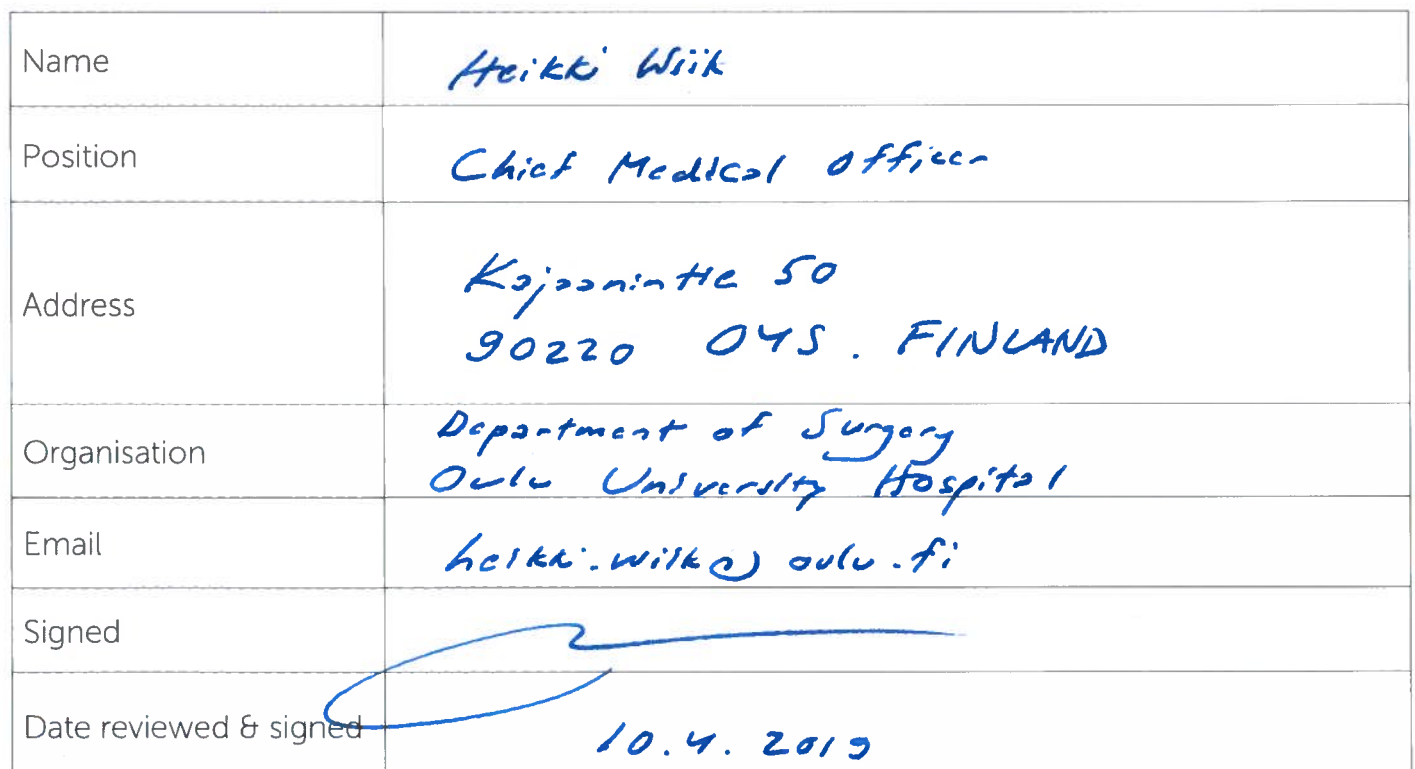 Name Heikki Wiik
Position Chief Medical Officer
Address Kajaanintie 50
90220 OYS. FINLAND
Organisation Department of Surgery
Oulu University Hospital
Email heikki.wiik@oulu.fi
Signed
Date reviewed & signed 10.4.2019